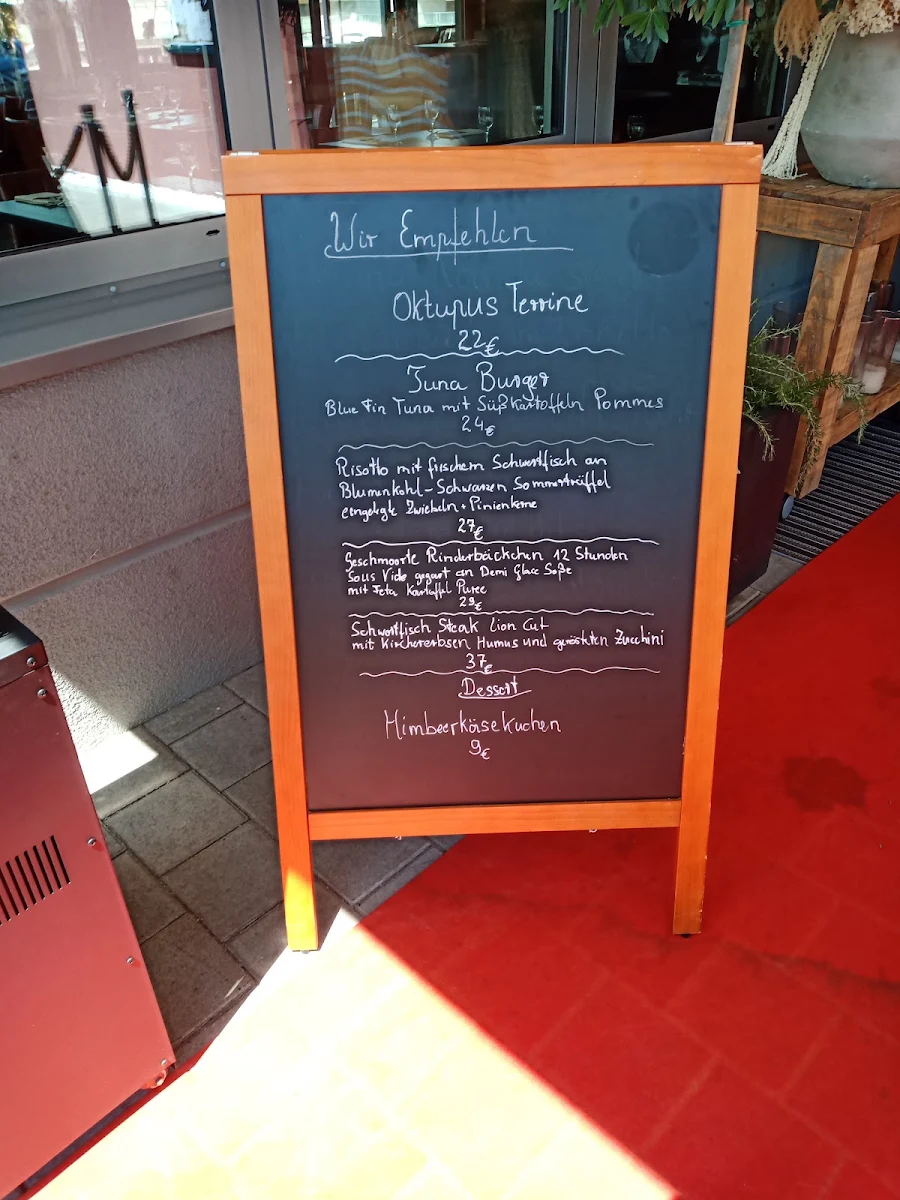 Wir Empfehlen
Oktupus Terrine
22€
Tuna Burger
Blue Fin Tuna mit Süßkartoffeln Pommes
24€
Risotto mit frischem Schwertfisch an
Blumenkohl-Schwarzen Sommertrüffel
eingelegte Zwiebeln + Pinienkerne
27€
Geschmoorte Rinderbäckchen 12 Stunden
Sous Vide gegart an Demi Glace Soße
mit Feta Kartoffel Püree
29€
Schwertfisch Steak Lion Cut
mit Kichererbsen Humus und gerösteten Zucchini
37€
Dessert
Himbeerkäsekuchen
9€